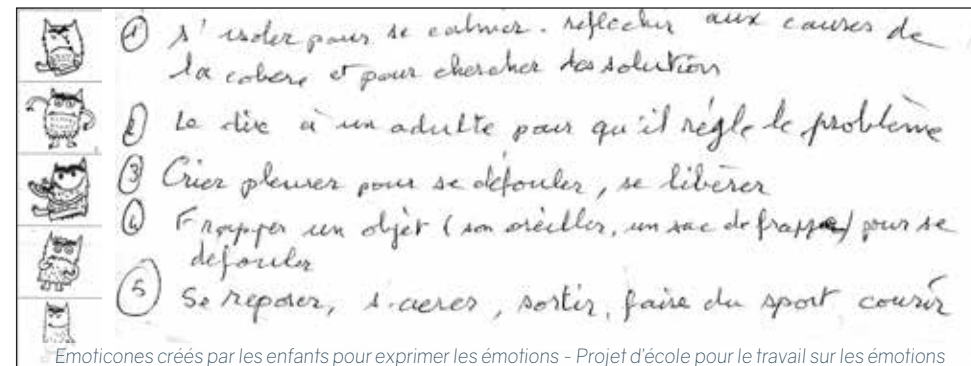 ① s'isoler pour se calmer. réflechir aux causes de
la colere et pour chercher des solution
② Le dire a un adulte pour qu'il régle le problème
③ Crier pleurer pour se défouler, se libèrer
④ Frapper un objet (son oreiller, un sac de frappe) pour se
defouler
⑤ Se reposer, s'aerer, sortir, faire du sport courir
Emoticones créés par les enfants pour exprimer les émotions - Projet d'école pour le travail sur les émotions